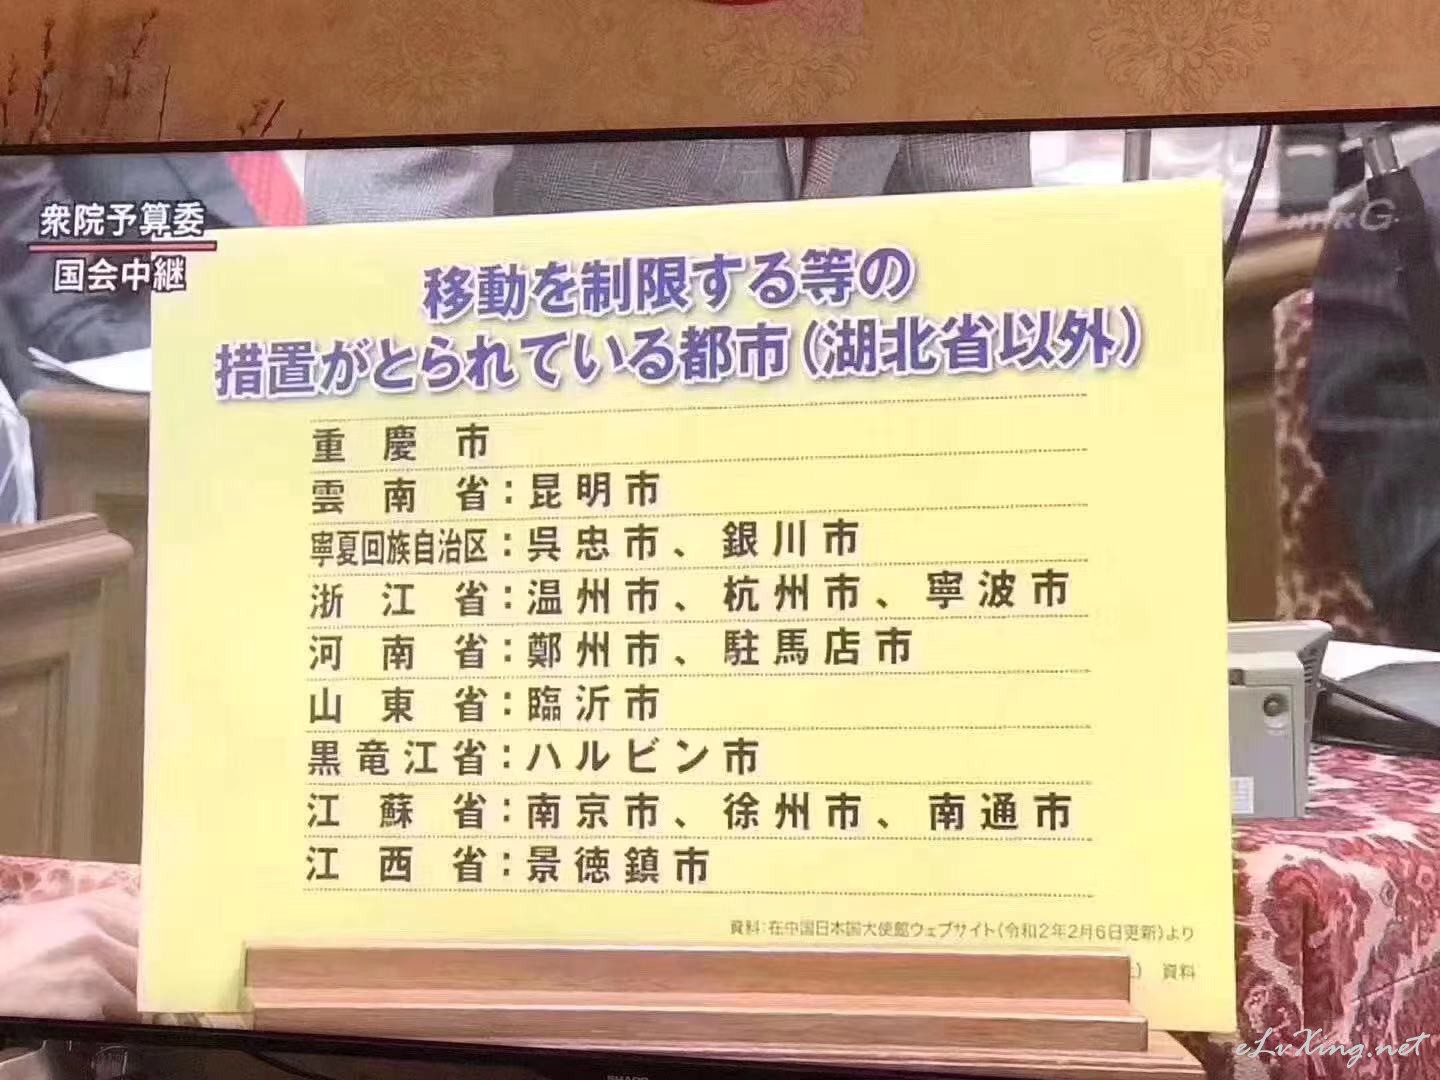 衆院予算委
国会中継
NHK G
移動を制限する等の
措置がとられている都市(湖北省以外)
重慶市
雲南省:昆明市
寧夏回族自治区:呉忠市、銀川市
浙江省:温州市、杭州市、寧波市
河南省:鄭州市、駐馬店市
山東省:臨沂市
黒竜江省:ハルビン市
江蘇省:南京市、徐州市、南通市
江西省:景徳鎮市
資料:在中国日本国大使館ウェブサイト(令和2年2月6日更新)より
資料
SHARP
eLvXing.net